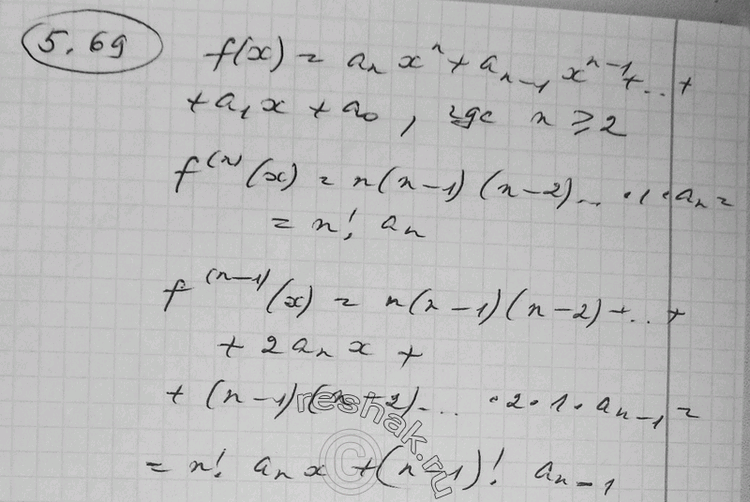 5.69
f(x) = aₙ xⁿ + aₙ₋₁ xⁿ⁻¹ + ... +
+ a₁ x + a₀ , где n ≥ 2
f⁽ⁿ⁾(x) = n(n-1)(n-2)... ·1·aₙ =
= n! aₙ
f⁽ⁿ⁻¹⁾(x) = n(n-1)(n-2)+...+
+ 2aₙ x +
+ (n-1)(n+2)... ·2·1·aₙ₋₁ =
= n! aₙ x + (n-1)! aₙ₋₁
reshak.ru
©